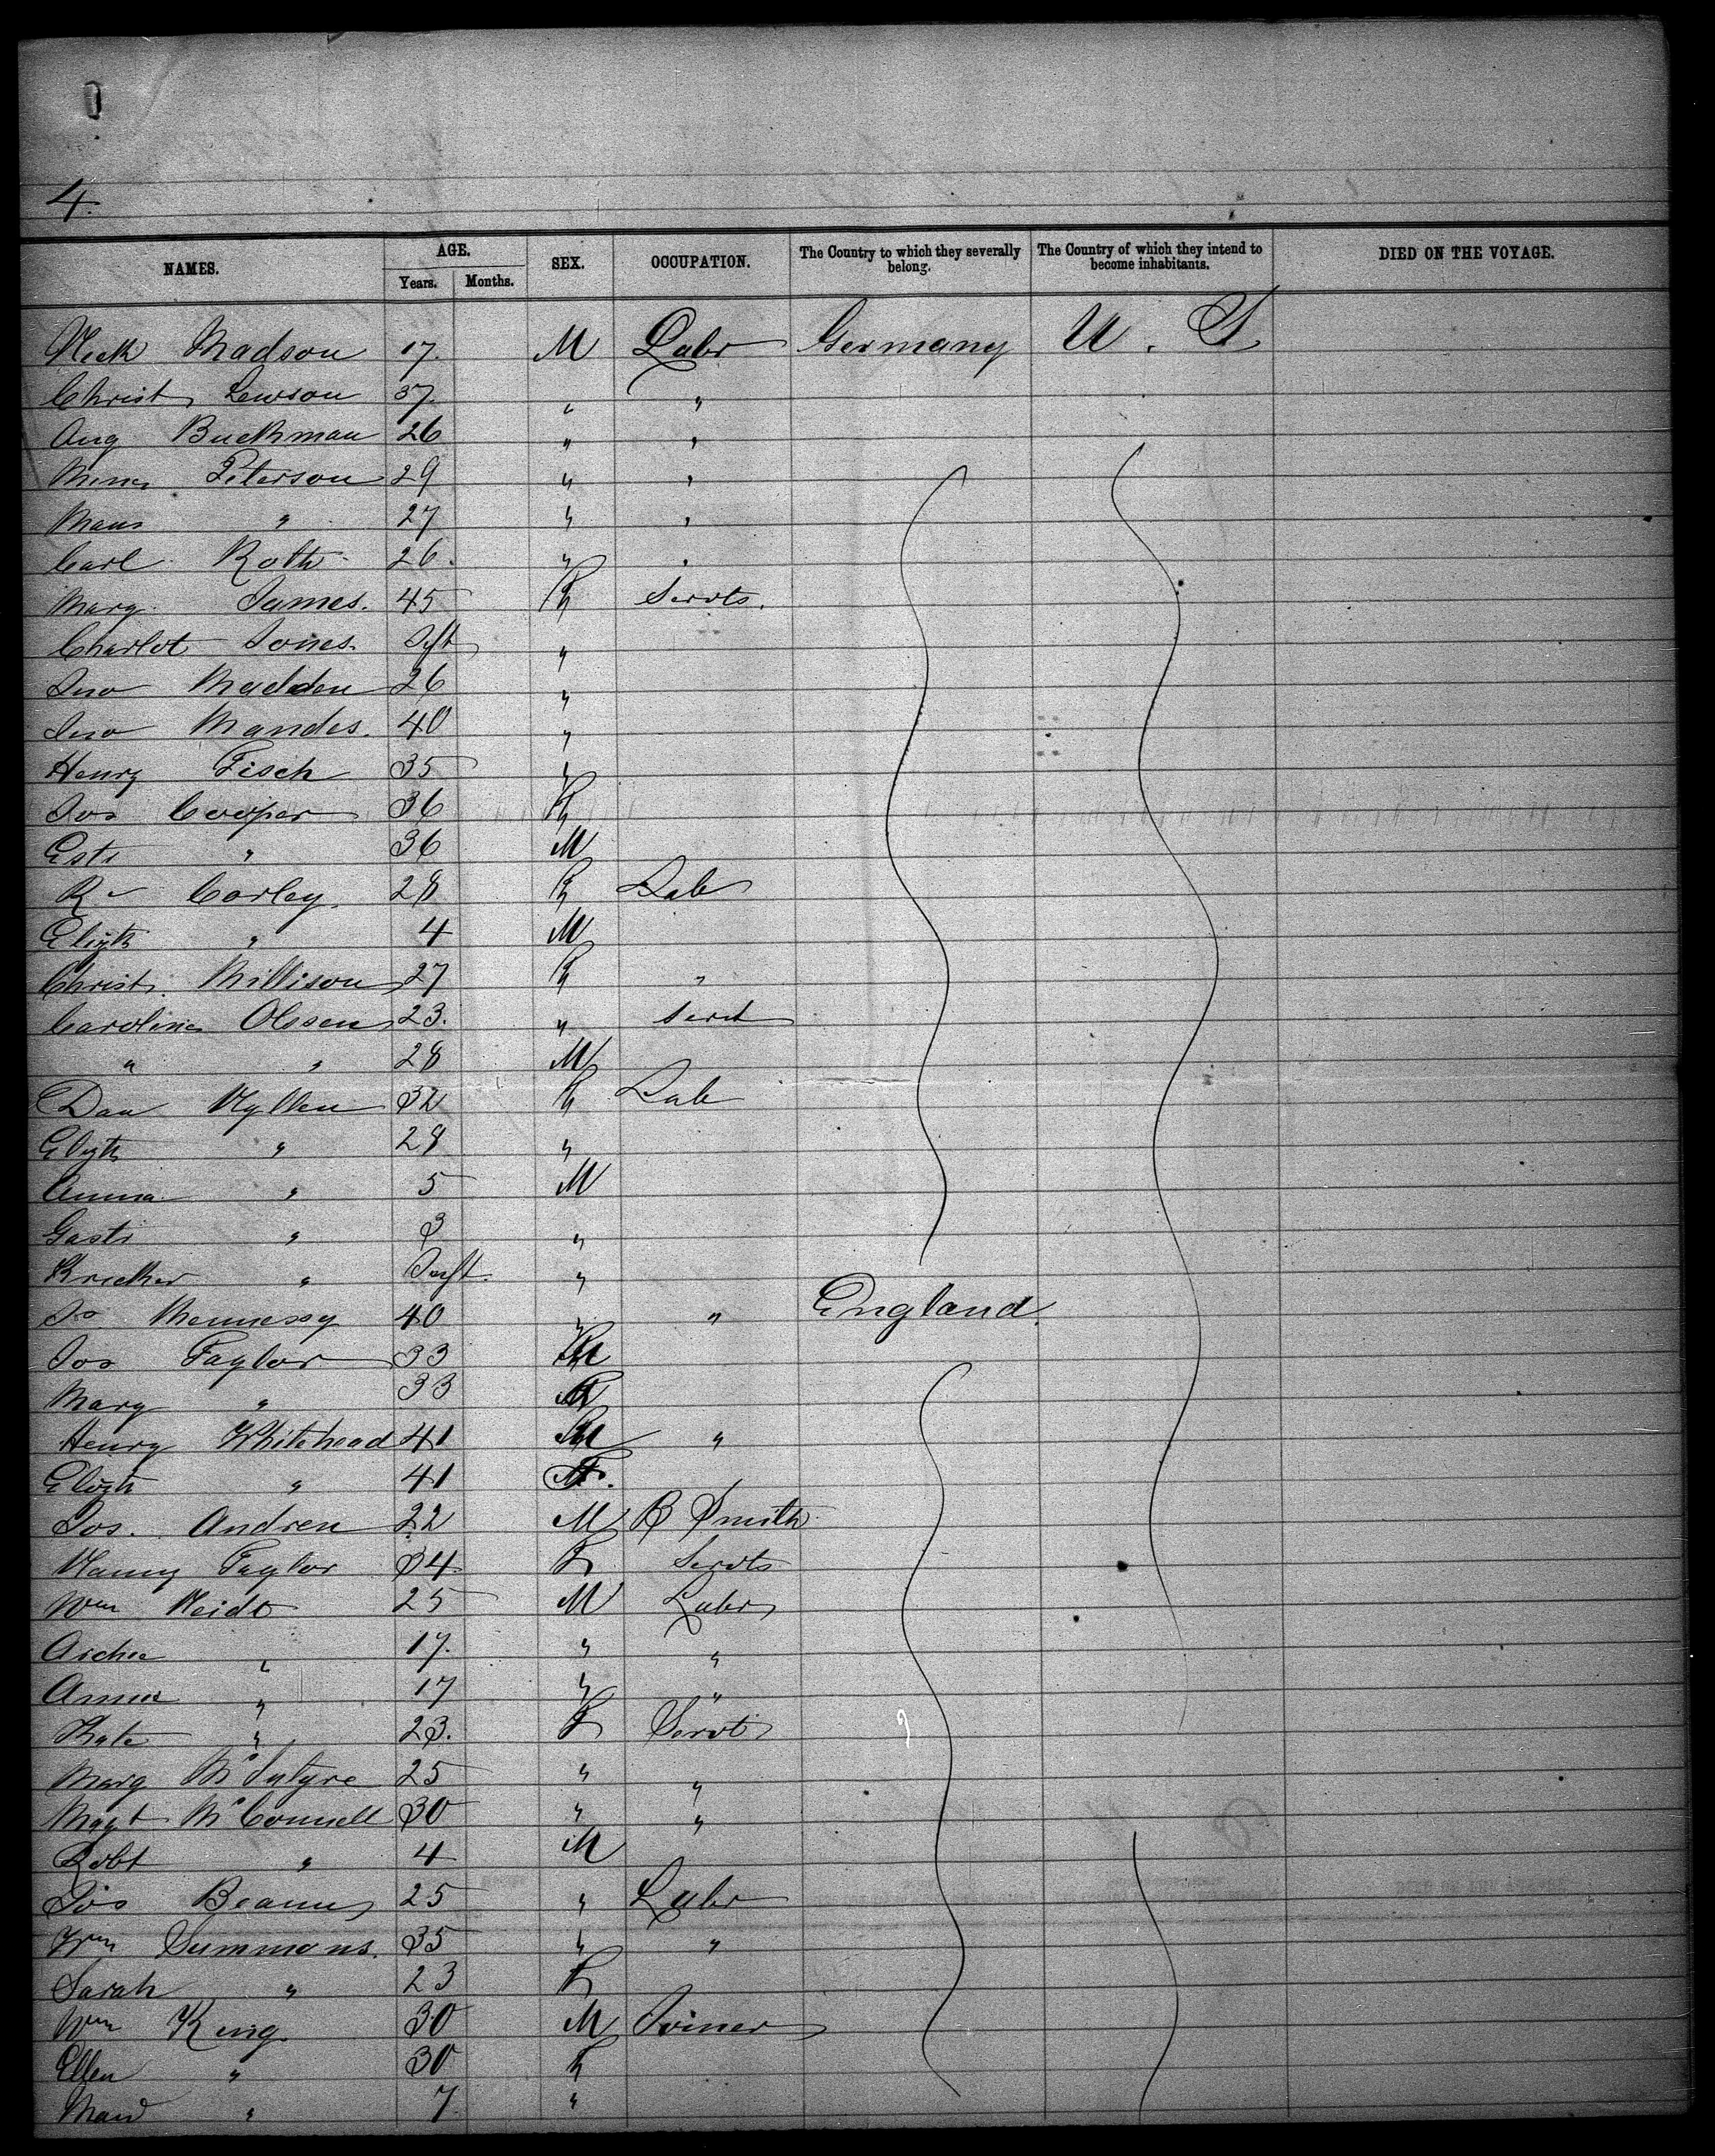 4.
NAMES. AGE. Years. Months. SEX. OCCUPATION. The Country to which they severally belong. The Country of which they intend to become inhabitants. DIED ON THE VOYAGE.
Madson 17. M Labr Germany U. S
Christ Lewson 37 " "
Aug Buckman 26 " "
Peterson 29 " "
" 27 " "
Carl Roth 26. " "
Marg. James. 45 F Servts.
Charlot Jones. Inft "
Jno Madden 26 "
Jno Mandes. 40 "
Henry Fisch 35 "
Jos Cooper 36 F
" 36 M
Corley. 28 F Lab
Elizth " 4 M
Christ. Millison 27 F "
Caroline Olssen 23. " Servt
" " 28 M
Dan 32 F Lab
Elizth " 28 "
Anna " 5 M
" 3 "
" Inft. "
Hennessy 40 " " England.
Jos Taylor 33 M
Mary " 33
Henry Whitehead 41 M "
Elizth " 41 F.
Jos. Andren 22 M B Smith
Taylor 34 F Servts
Wm 25 M Labr
Archie " 17. " "
Annie " 17 " "
Kate " 23. F Servt
Marg McIntyre 25 " "
Magt McConnell 30 " "
Robt " 4 M
Jos 25 " Labr
Wm Summons. 35 " "
Sarah " 23 F
Wm King 30 M Joiner
Ellen " 30 F
" 7 "